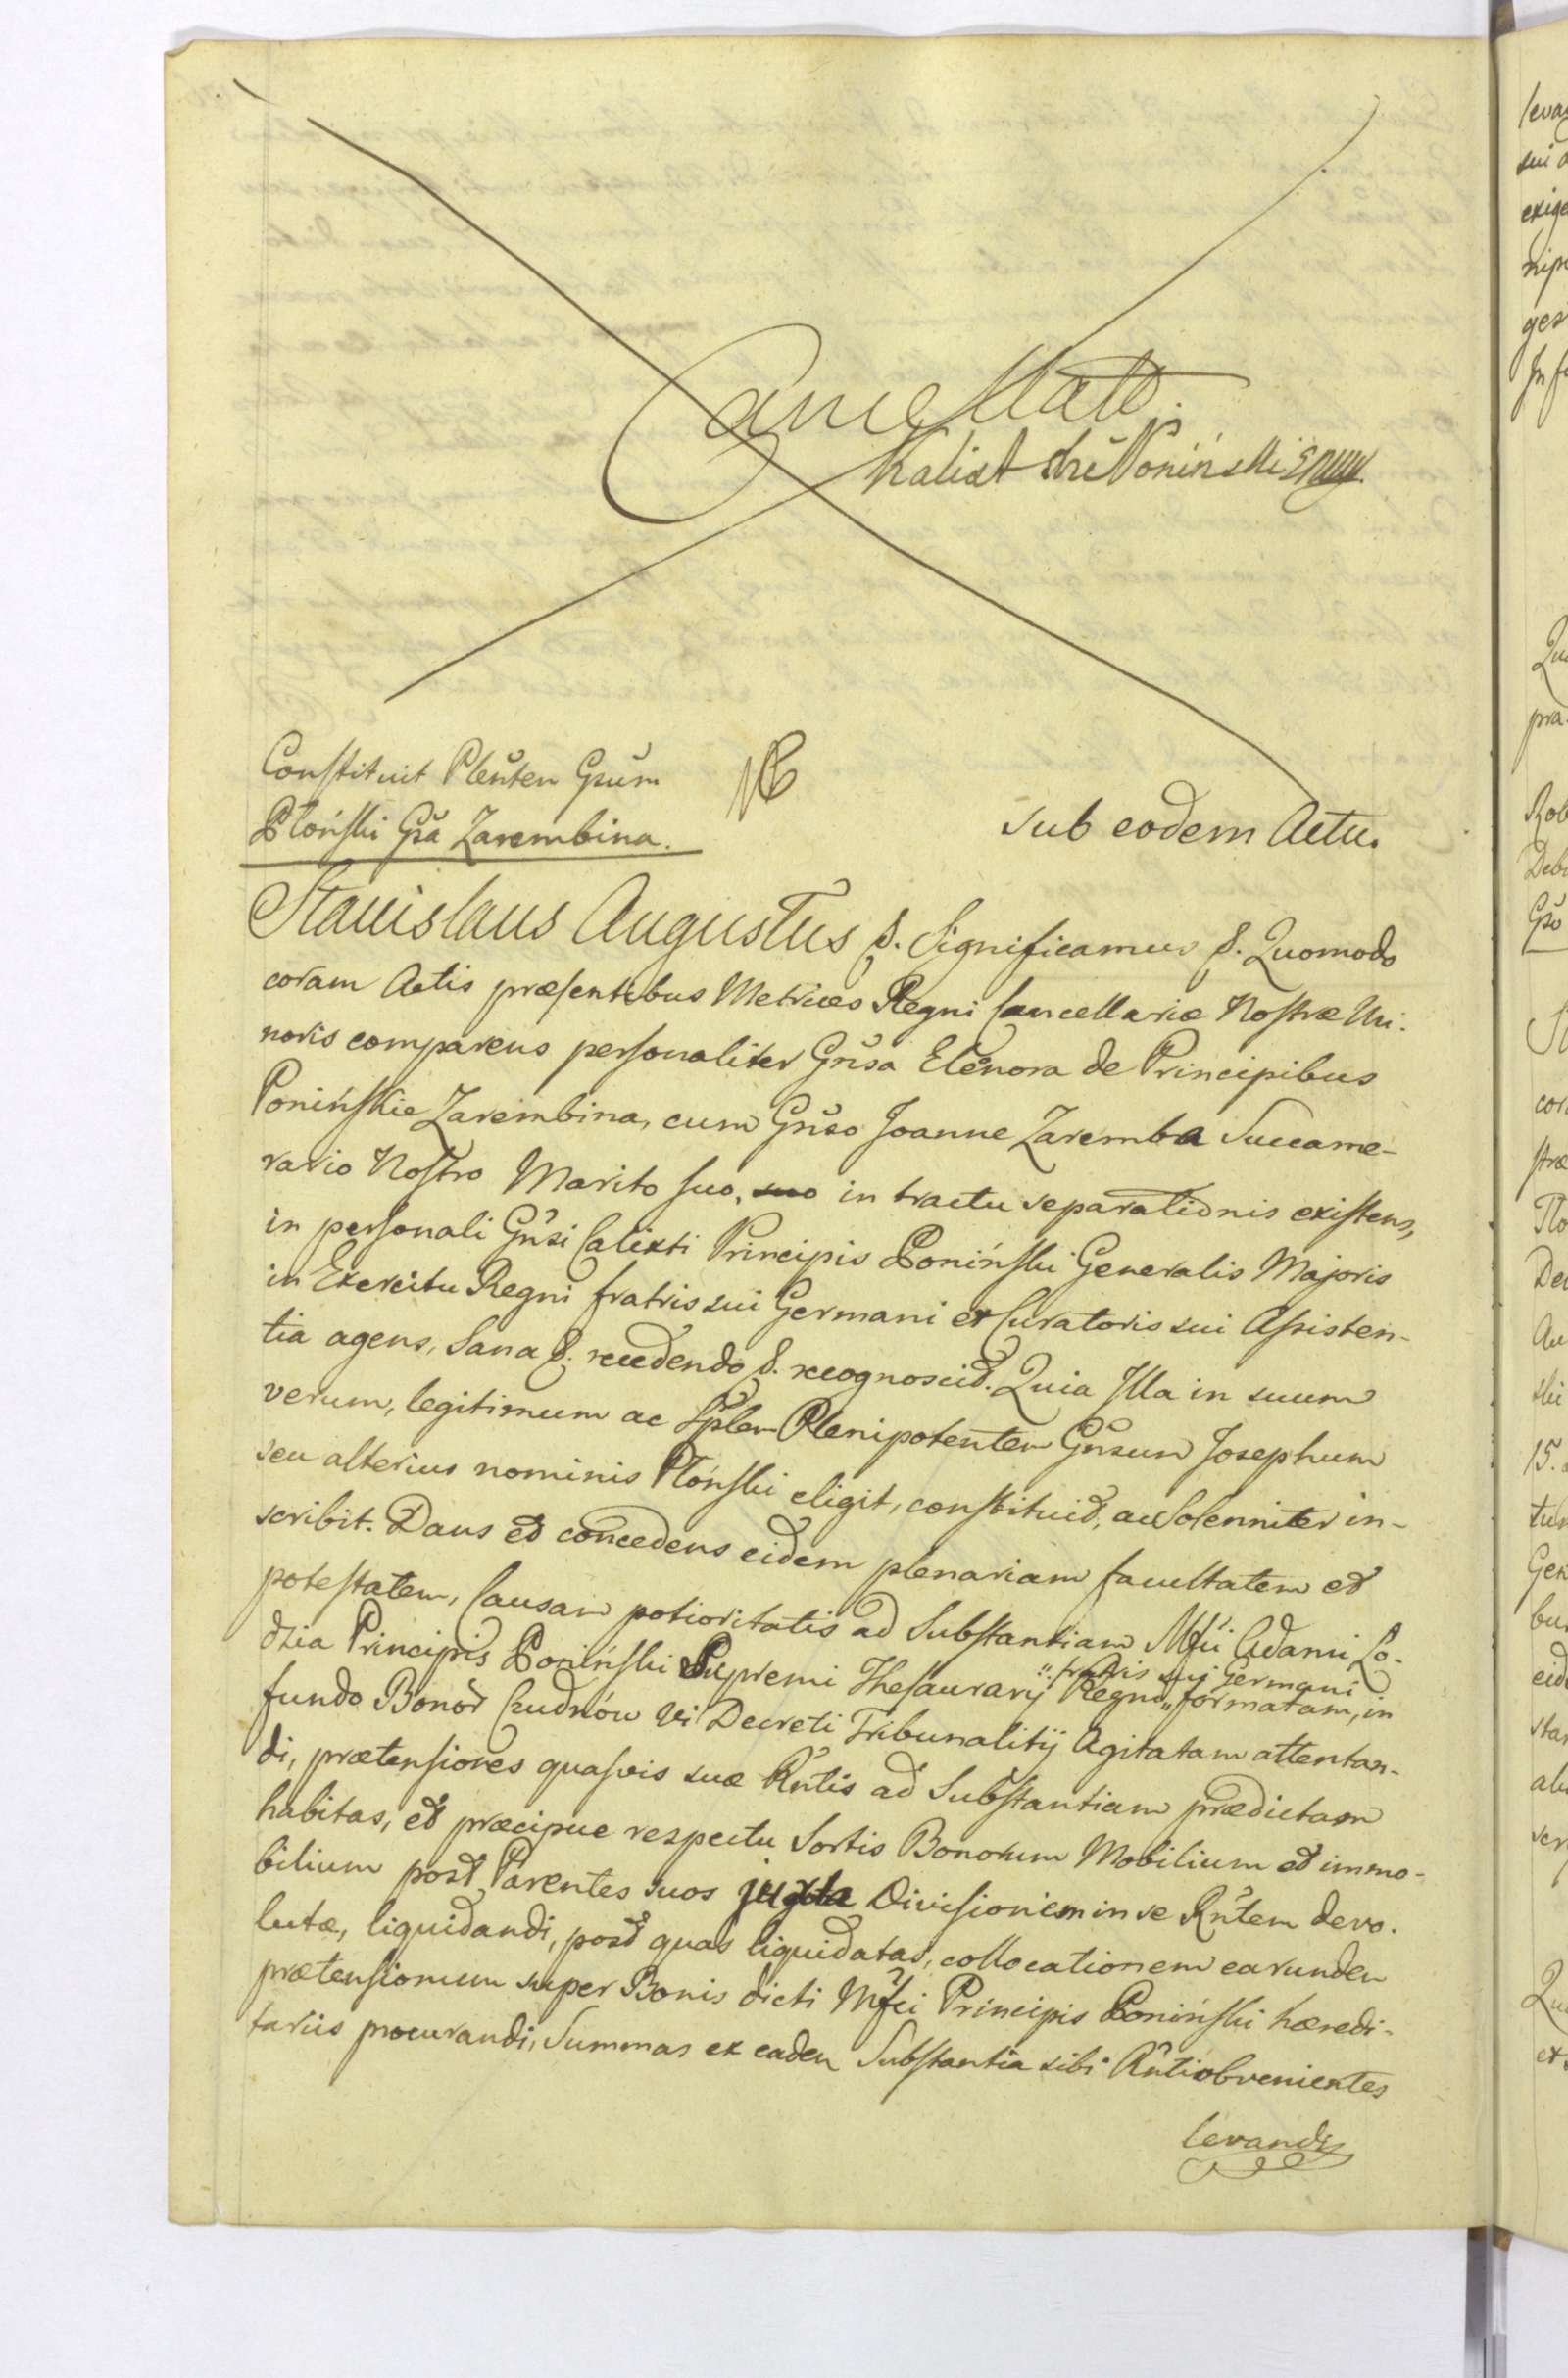 Cancellatt.
Kalixt Poniński
Constituit Pleñten Gsum
Płoński Gsa Zarembina.
Sub eodem Actu.
Stanislaus Augustus &. Significamus &. Quomodo
coram Actis præsentibus Metrices Regni Cancellariæ Nostræ Mi-
noris comparens personaliter Gñsa Elenora de Principibus
Ponińskie Zarembina, cum Gñso Joanne Zaremba Succame-
rario Nostro Marito suo, suo in tractu separationis existens,
in personali Gñsi Calixti Principis Poniński Generalis Majoris
in Exercitu Regni fratris sui Germani et Curatoris sui Assisten-
tia agens, Sana &. recedendo &. recognoscit. Quia Illa in suum
verum, legitimum ac Splem Plenipotentem Gñsum Josephum
seu alterius nominis Płoński eligit, constituit, ac Solenniter in-
scribit. Dans et concedens eidem plenariam facultatem et
potestatem, Causam potioritatis ad Substantiam Mfci Adami Lo-
dzia Principis Poniński Supremi Thesaurarij Regni
fratris sui Germani
formatam, in
fundo Bonor Cudnów vi Decreti Tribunalitij Agitatam attentan-
di, prætensiones quasvis suæ Rñtis ad Substantiam prædictam
habitas, et præcipue respectu Sortis Bonorum Mobilium et immo-
bilium post Parentes suos juxta Divisionem in se Rñtem devo-
lutæ, liquidandi, post quas liquidatas, collocationem earundem
prætensionum super Bonis dicti Mfci Principis Poniński hæredi-
tariis procurandi, Summas ex eadem Substantia sibi Rñti obvenientes
levandi